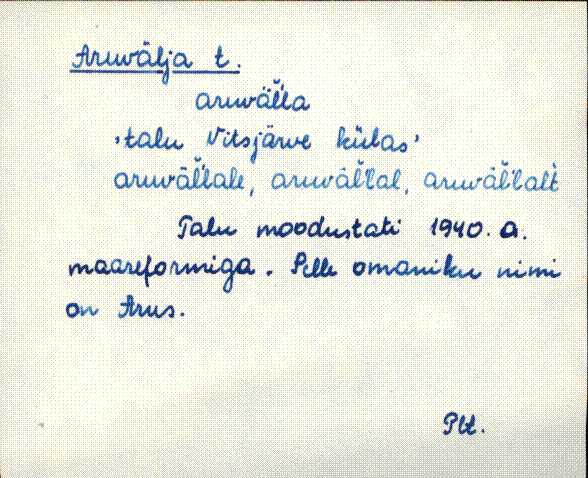 Aruvälja t.
aruväĺĺa
'talu Vitsjärve külas'
aruväĺĺale, aruväĺĺal, aruväĺĺalt
Talu moodustati 1940. a.
maareformiga. Selle omaniku nimi
on Arus.
Plt.